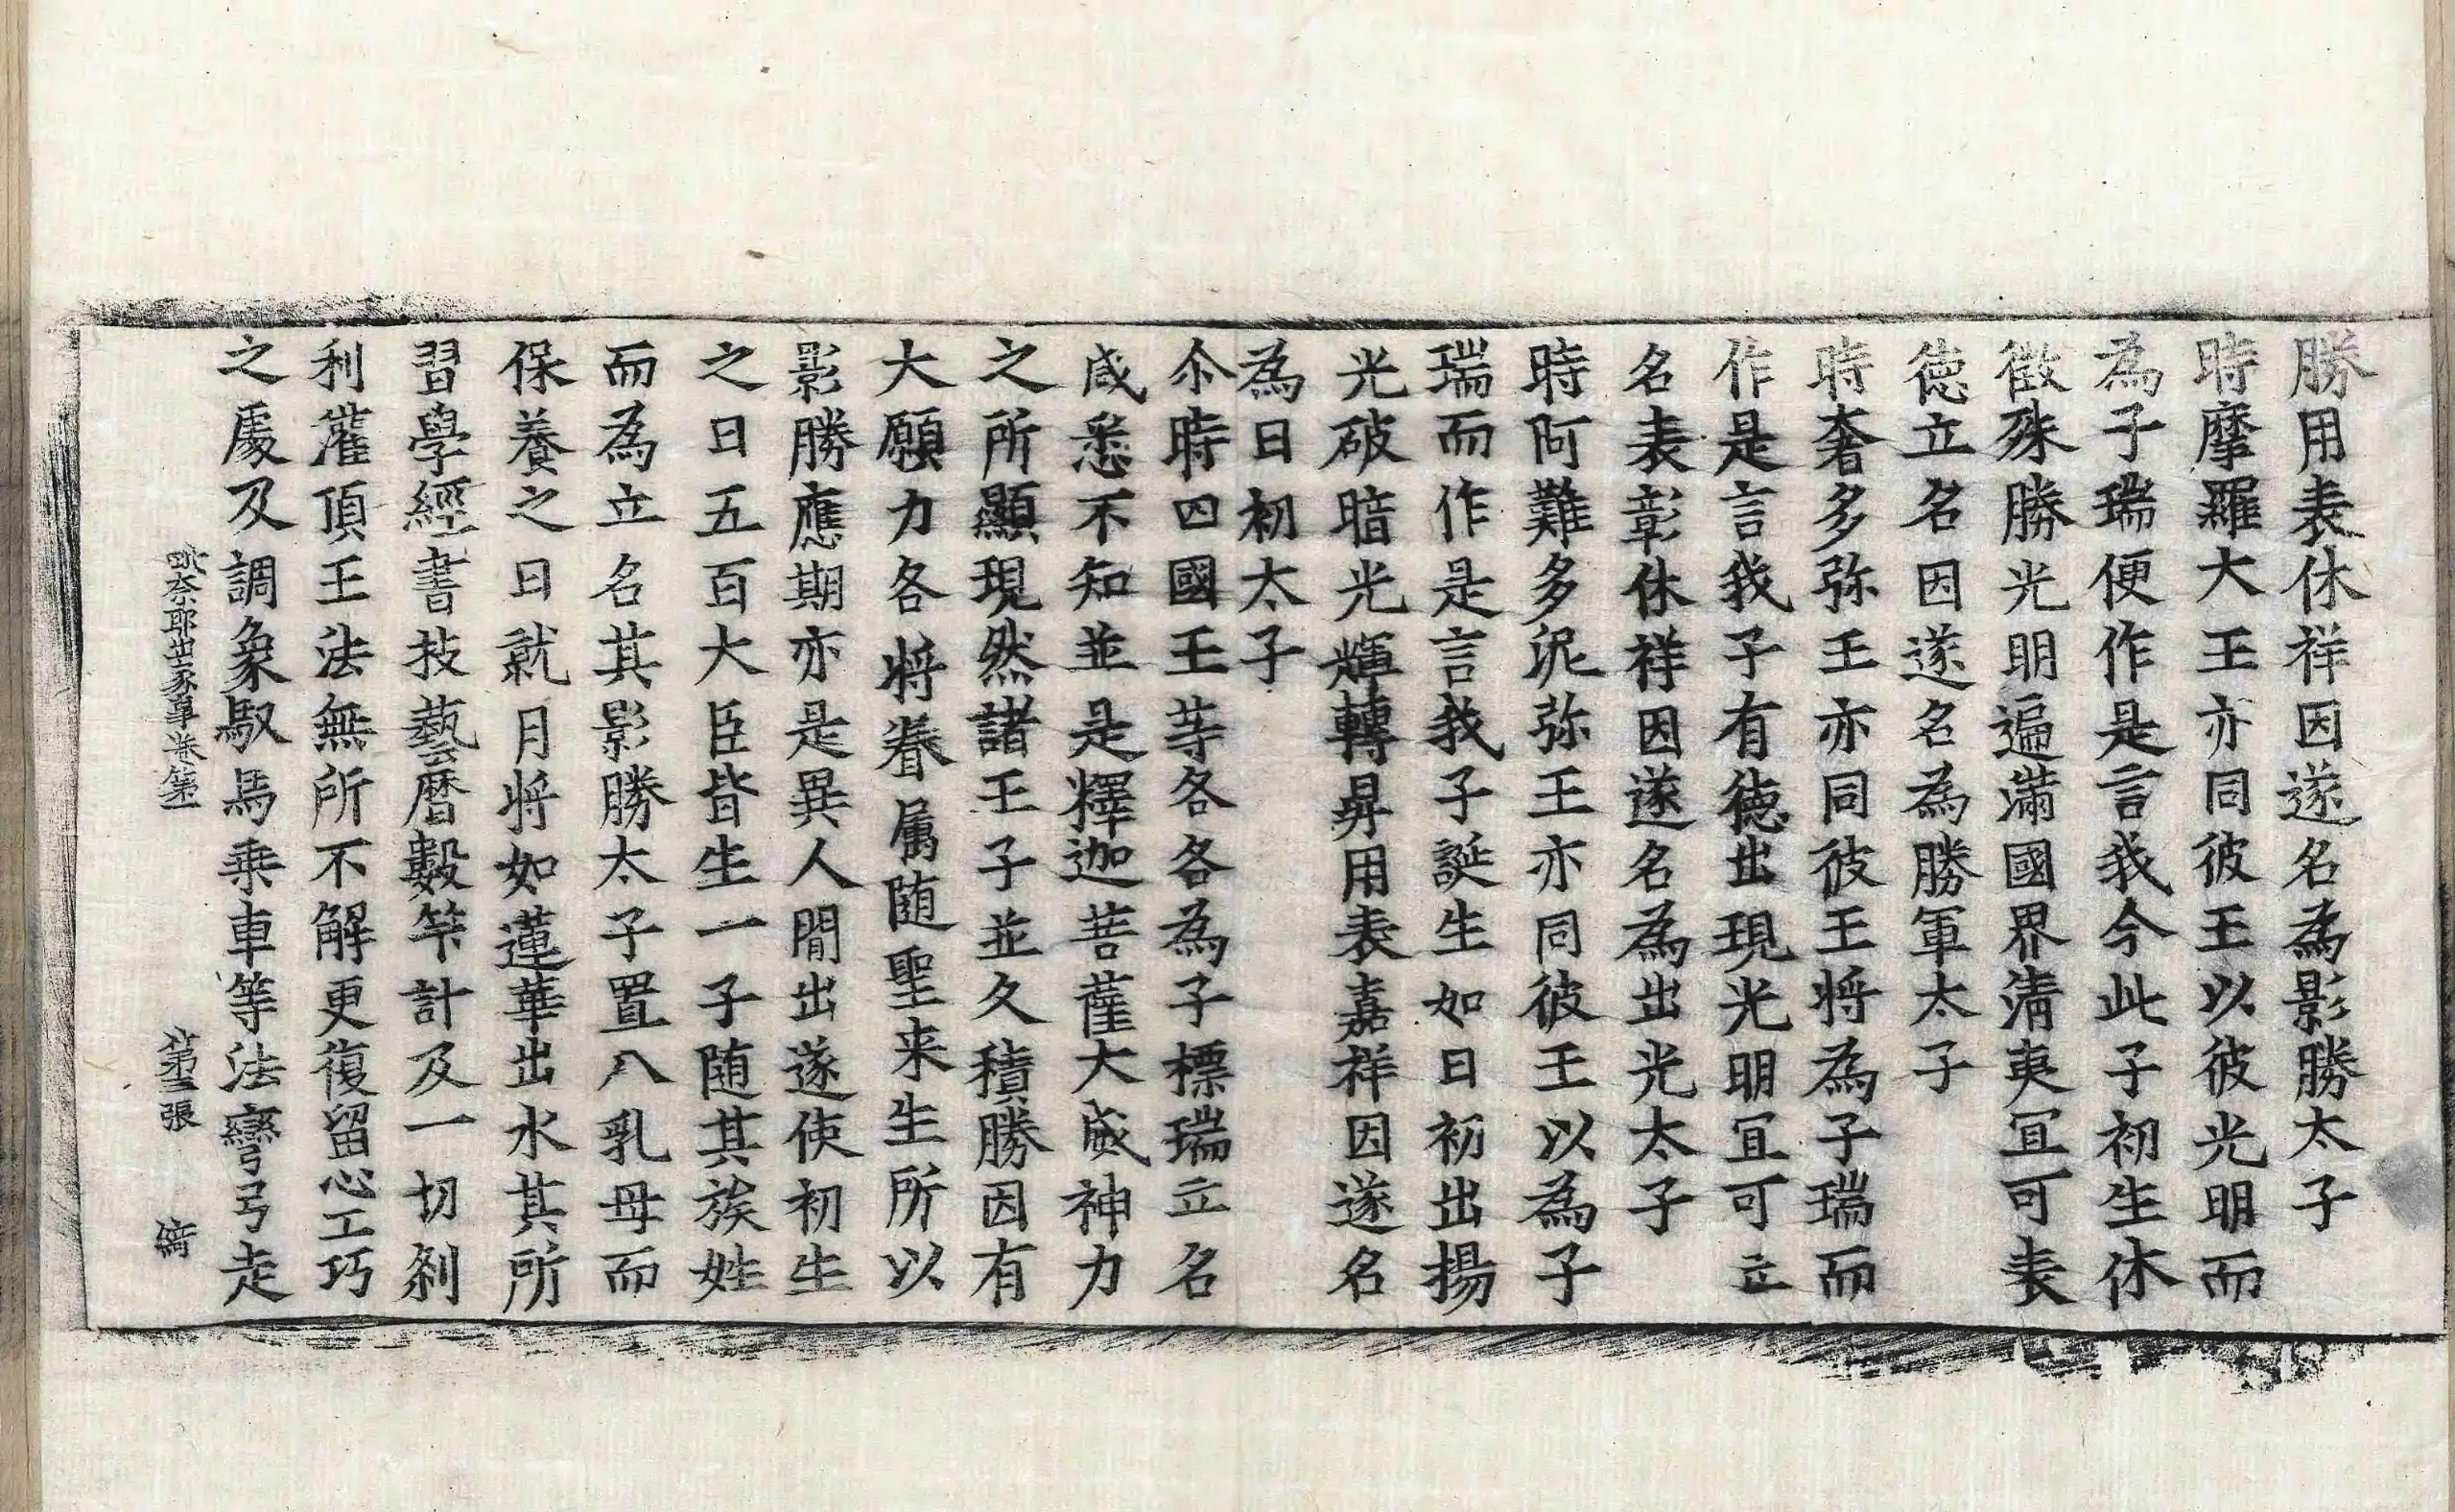 勝用表休祥因遂名為影勝太子
時摩羅大王亦同彼王以彼光明而
為子瑞便作是言我今此子初生休
徵殊勝光明遍滿國界清夷冝可表
徳立名因遂名為勝軍太子
時奢多弥王亦同彼王将為子瑞而
作是言我子有徳出現光明冝可立
名表彰休祥因遂名為出光太子
時阿難多泥弥王亦同彼王以為子
瑞而作是言我子誕生如日初出揚
光破暗光輝轉昇用表嘉祥因遂名
為日初太子
尒時四國王等各各為子標瑞立名
咸悉不知並是釋迦菩薩大威神力
之所顯現然諸王子並久積勝因有
大願力各将眷属随聖来生所以
影勝應期亦是異人間出遂使初生
之日五百大臣皆生一子随其族姓
而為立名其影勝太子置八乳母而
保養之日就月将如蓮華出水其所
習學經書技藝曆數筭計及一切剎
利灌頂王法無所不解更復留心工巧
之處及調象馭馬乗車等法彎弓走
毗奈耶出家事卷第一 第三張 𦀗